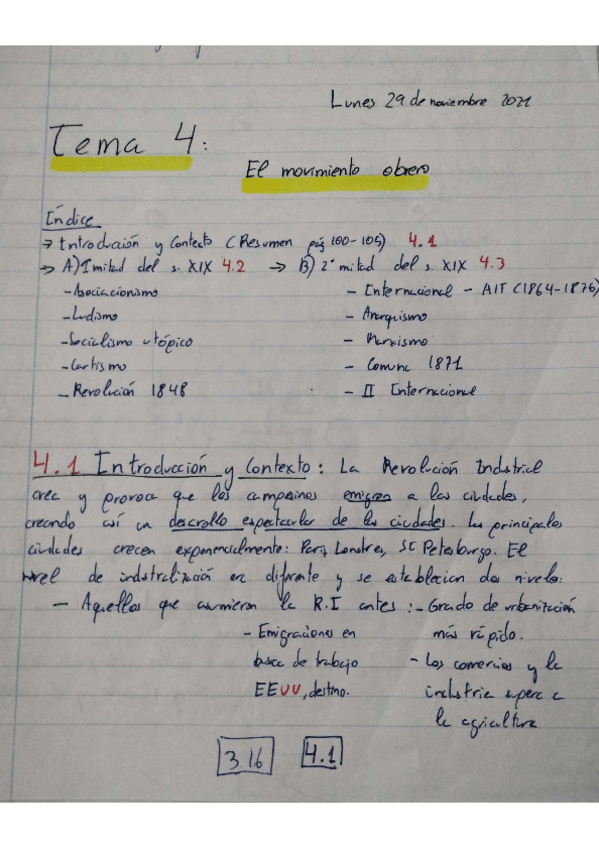 Lunes 29 de noviembre 2021
Tema 4:
El movimiento obrero
Índice
→ Introducción y Contexto (Resumen pág 100-105) 4.1
→ A) 1ª mitad del s. XIX 4.2 → B) 2ª mitad del s. XIX 4.3
- Asociacionismo
- Ludismo
- Socialismo utópico
- Cartismo
- Revolución 1848
- Internacional - AIT (1864-1876)
- Anarquismo
- Marxismo
- Comuna 1871
- II Internacional
4.1 Introducción y Contexto: La Revolución Industrial
crea y provoca que los campesinos emigren a las ciudades,
creando así un desarrollo espectacular de las ciudades. Las principales
ciudades crecen exponencialmente: París, Londres, San Petesburgo. El
nivel de industralización era diferente y se establecian dos niveles:
- Aquellos que asumieron la R.I antes:
- Emigraciones en
busca de trabajo
EEUU, destino.
- Grado de urbanización
más rápido.
- Los comercios y la
industria supera a
la agricultura
3.16 4.1